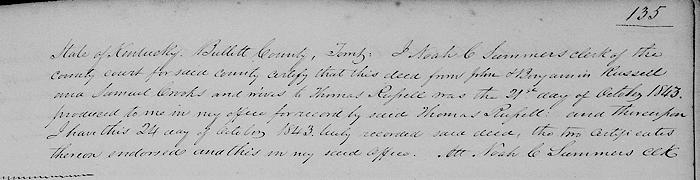 135
State of Kentucky. Bullett County, Towit: I Noah C Summers clerk of the
county court for said County certify that this deed from John & Benjamin Russell
and Samuel Crooks and wives to Thomas Russell was the 21st day of October 1843.
produced to me in my office for record by said Thomas Russell: and thereupon
I have this 24 day of October 1843. truly recorded said deed, the two certificates
thereon endorsed and this in my said office. Att Noah C Summers Clk